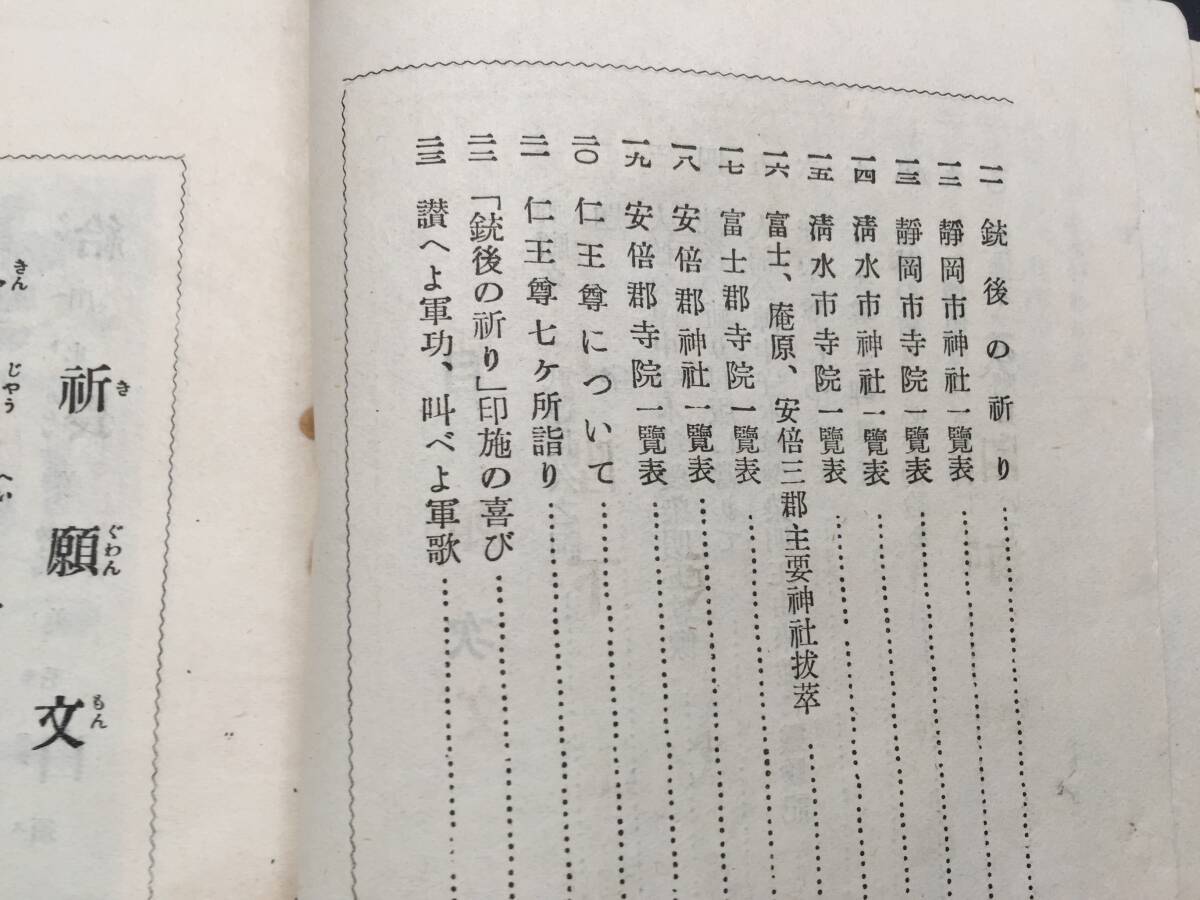 一一 銃後の祈り
一二 靜岡市神社一覽表
一三 靜岡市寺院一覽表
一四 淸水市神社一覽表
一五 淸水市寺院一覽表
一六 富士、庵原、安倍三郡主要神社拔萃
一七 富士郡寺院一覽表
一八 安倍郡神社一覽表
一九 安倍郡寺院一覽表
二〇 仁王尊について
二一 仁王尊七ケ所詣り
二二 「銃後の祈り」印施の喜び
二三 讃へよ軍功、叫べよ軍歌
祈願文
き ぐわん もん
きん
じやう
へい